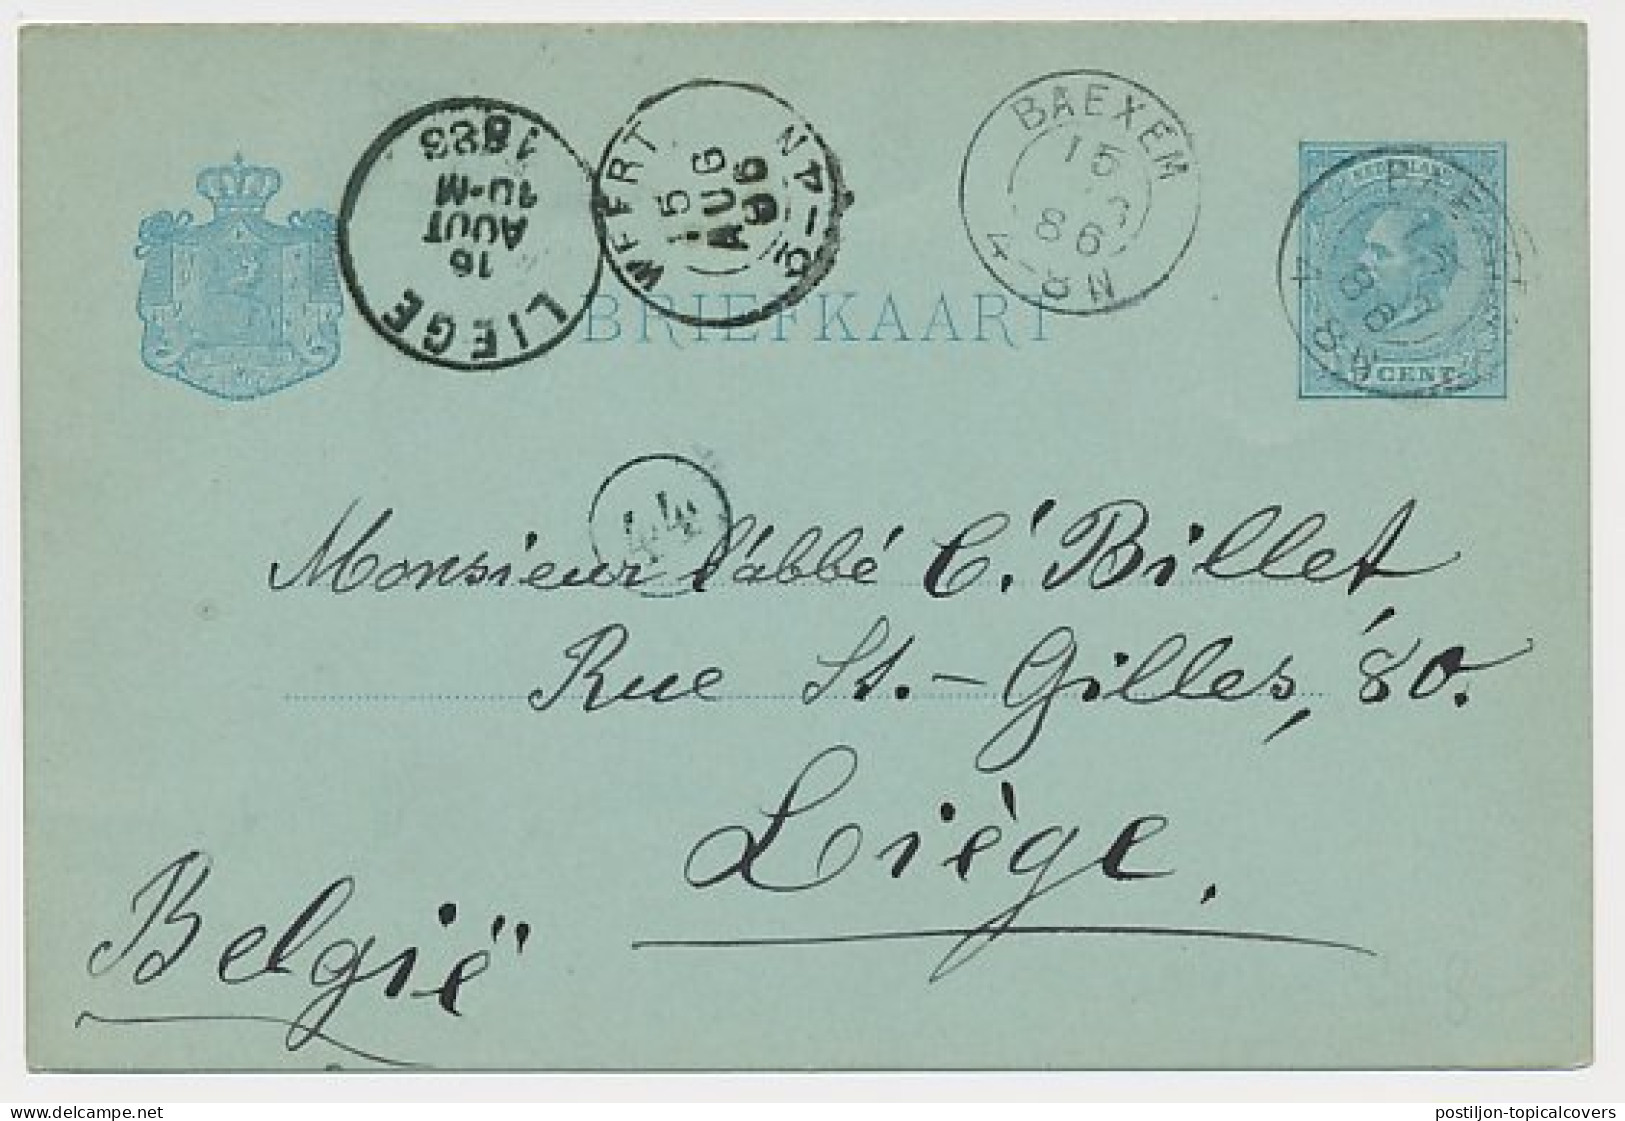 BAEXEM
15
86
WEERT
15
AUG
86
LIEGE
16
AOUT
10-M
NEDERLAND
CENT
BRIEFKAART
44
Monsieur l'abbé C. Billet
Rue St.-Gilles, 80.
Liège.
België
postiljon-topicalcovers
delcampe.net